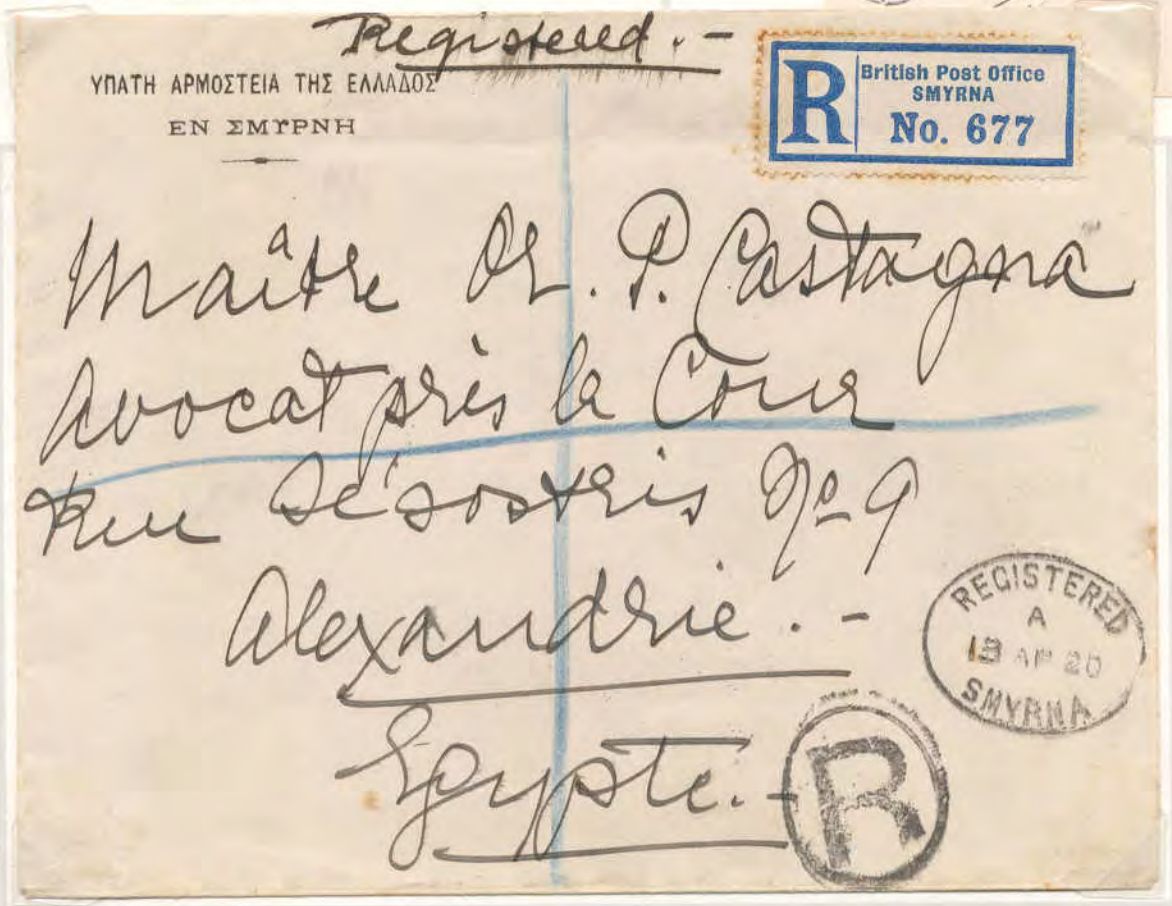 Registered . -
ΥΠΑΤΗ ΑΡΜΟΣΤΕΙΑ ΤΗΣ ΕΛΛΑΔΟΣ
ΕΝ ΣΜΥΡΝΗ
R
British Post Office
SMYRNA
No. 677
Maître P. Castagna
Avocat près la Cour
Rue Sésostris No 9
Alexandrie . -
Egypte. -
REGISTERED
A
AP 20
SMYRNA
R